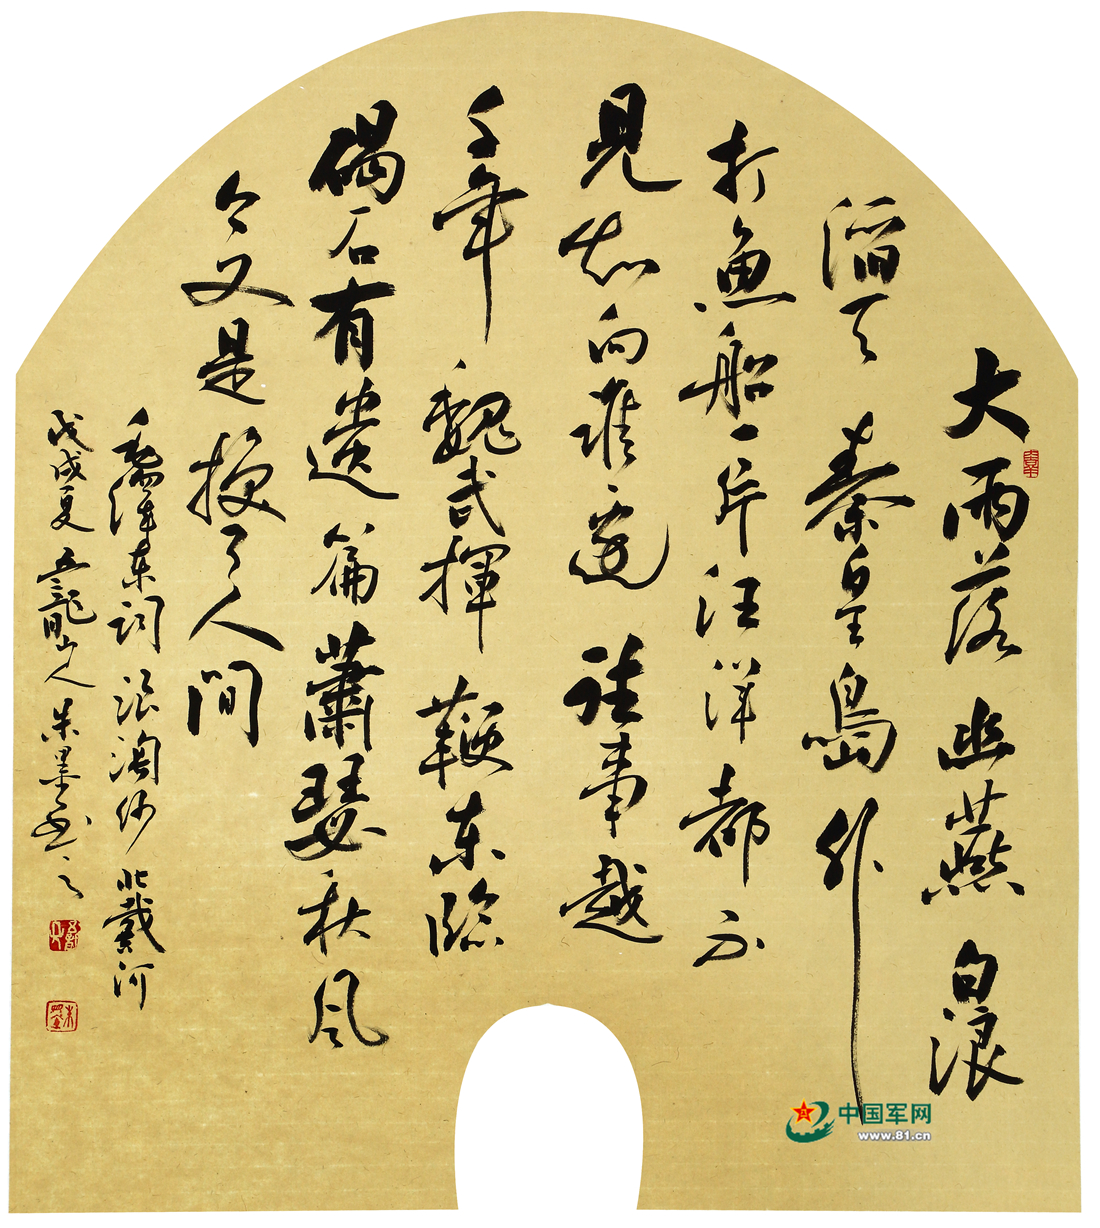 大雨落幽燕白浪
滔天秦皇島外
打魚船一片汪洋都不
見知向誰邊往事越
千年魏武揮鞭东臨
碣石有遺篇蕭瑟秋風
今又是換了人間
毛澤东詞浪淘沙北戴河
戊戌夏五龍山人朱墨书之
中国军网
www.81.cn